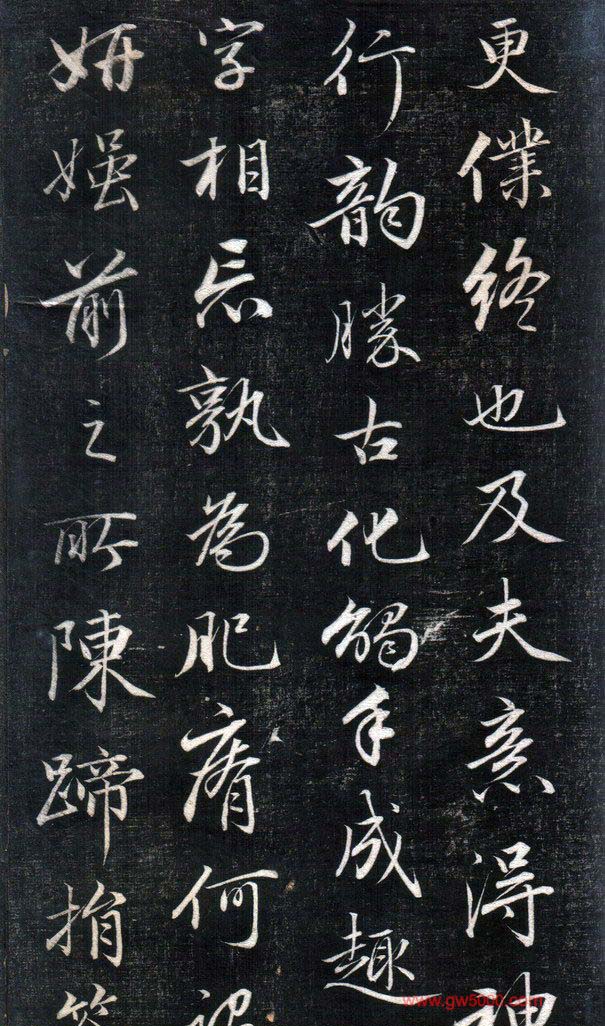 更僕終也及夫意得神
行韻勝古化觸手成趣
字相忘孰為肥瘠何
妍媸前之所陳蹄捐
www.gw5000.com